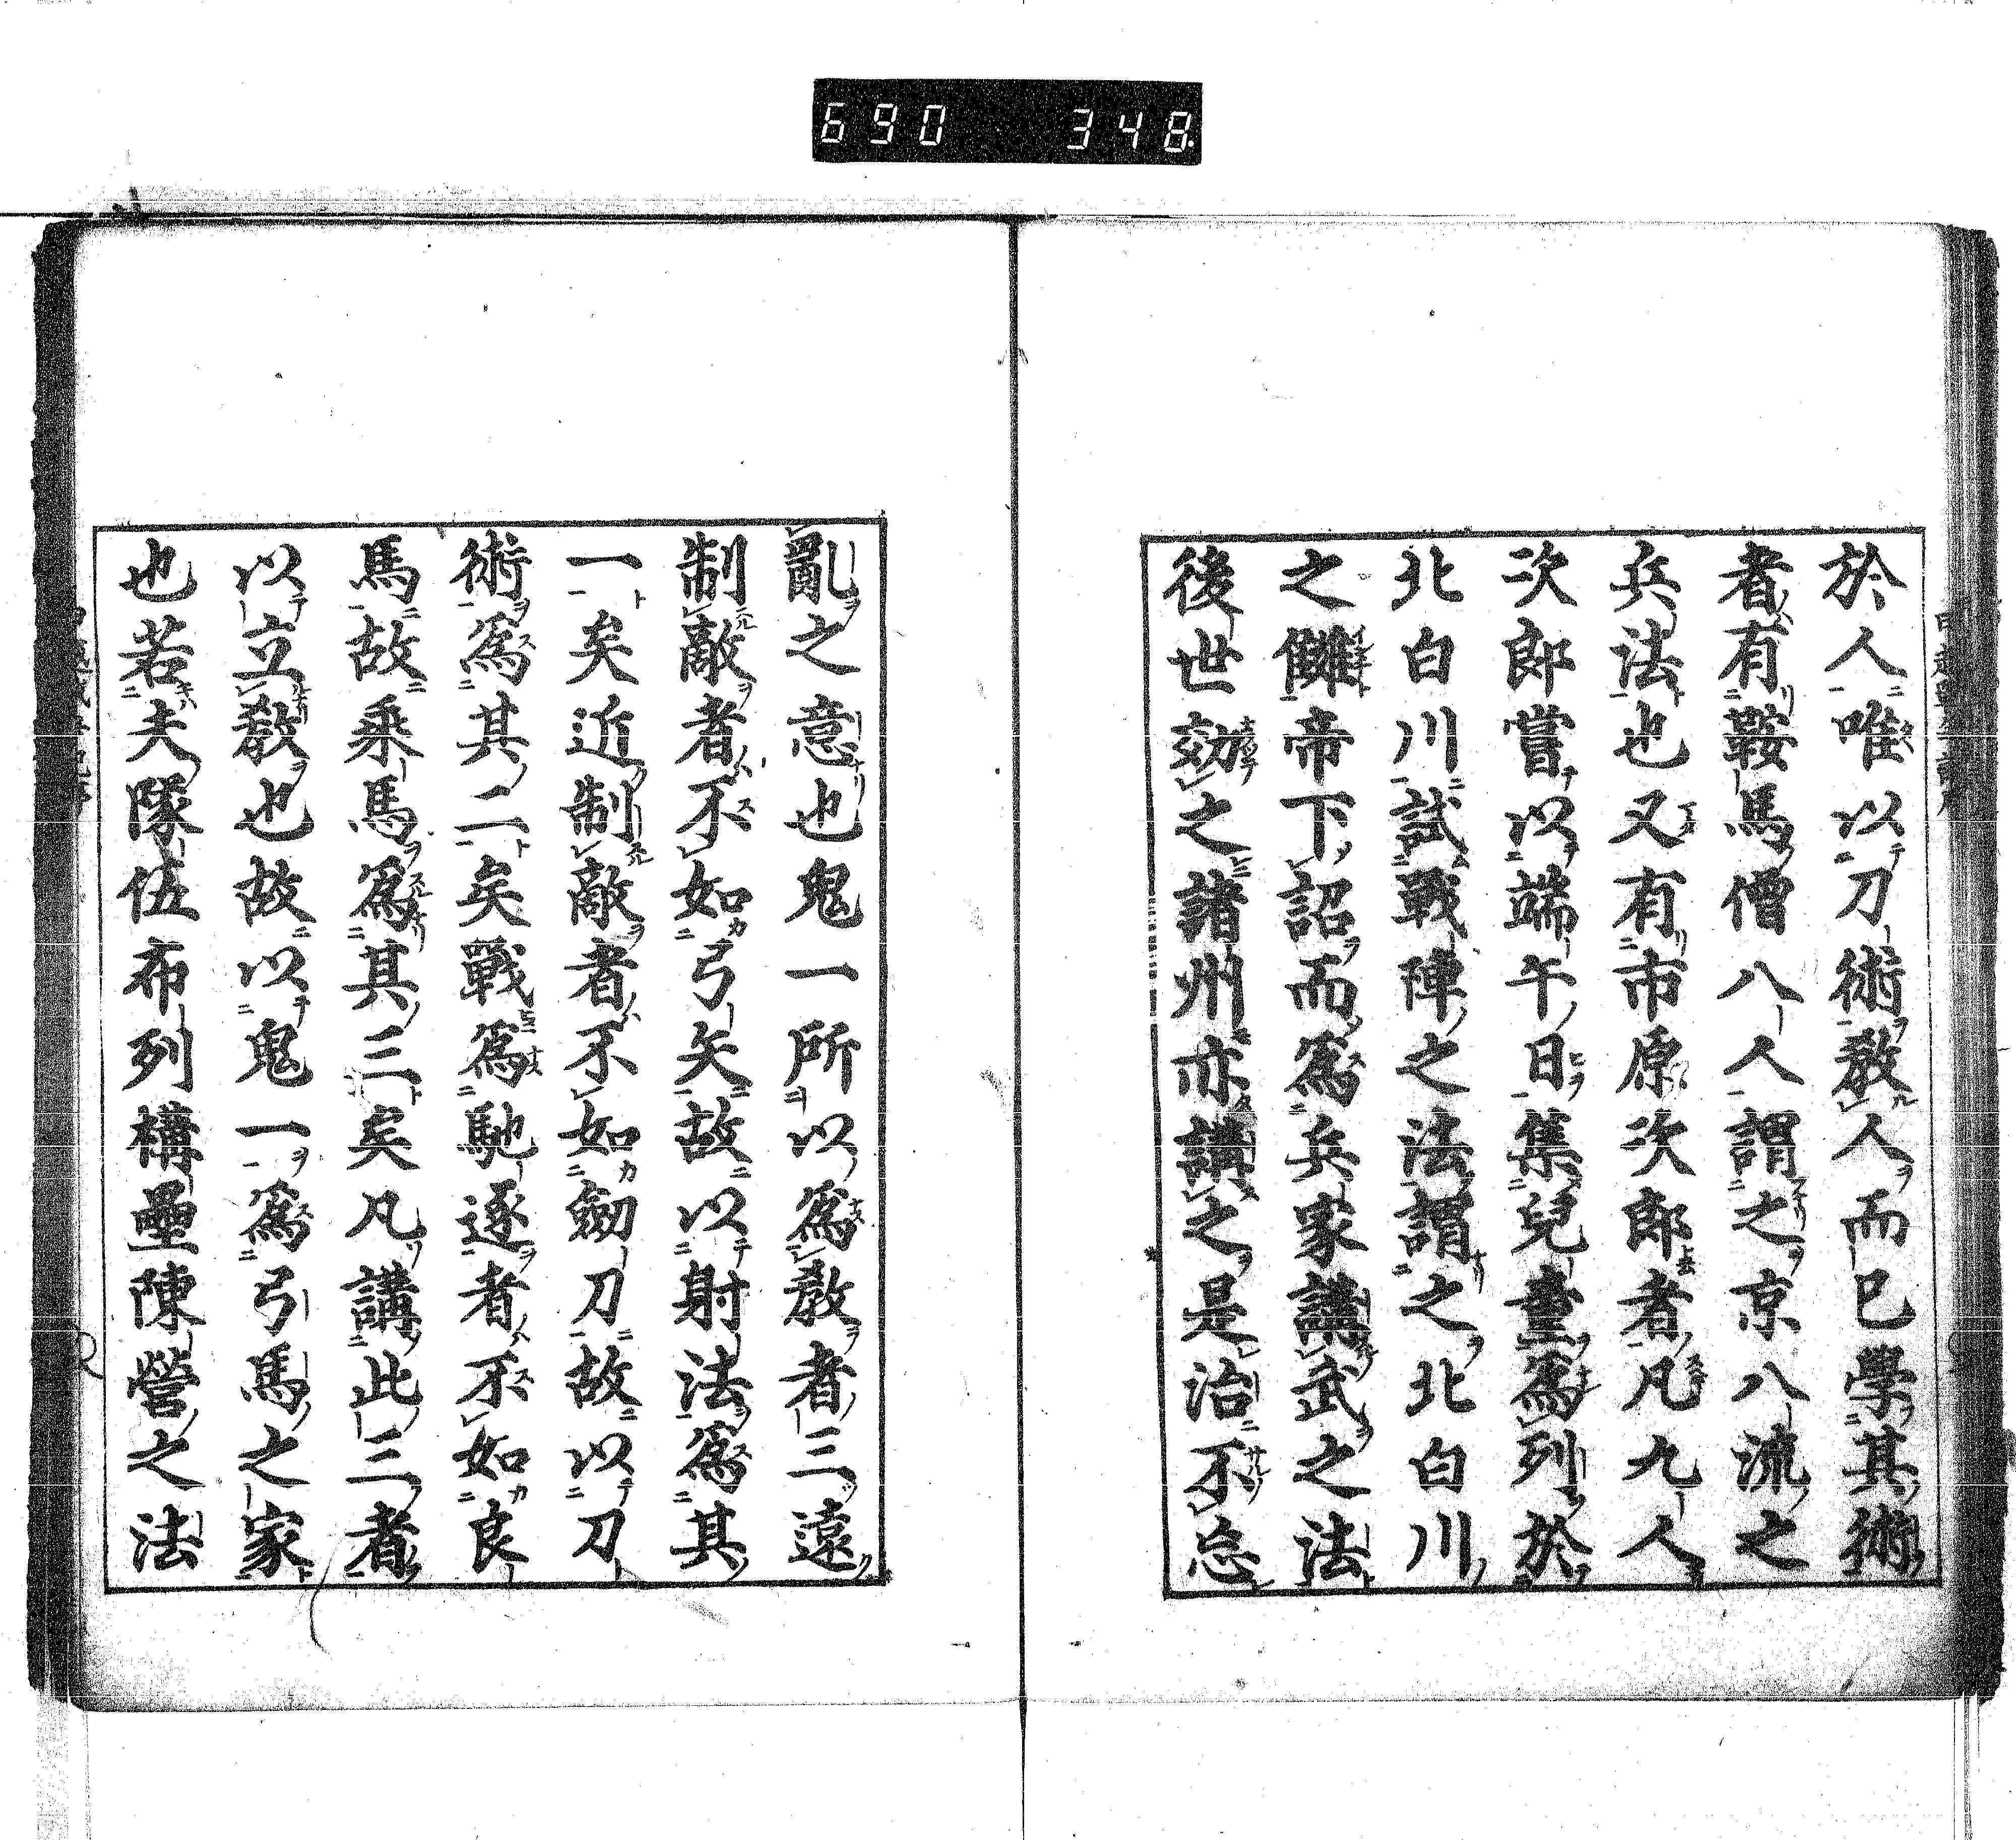 690 348
於人唯以刀術敎人而已學其術
者有鞍馬僧八人謂之京八流之
兵法也又有市原次郎者凡九人
次郎嘗以端午日集兒童爲列於
北白川試戰陣之法謂之北白川
之讎帝下詔而爲兵家講武之法
後世効之諸州亦講之是治不忘
亂之意也鬼一所以爲敎者三遠
制敵者不如弓矢故以射法爲其
一矣近制敵者不如劔刀故以刀
術爲其二矣戰爲馳逐者不如良
馬故乘馬爲其三矣凡講此三者
以立敎也故以鬼一爲弓馬之家
也若夫隊伍布列構壘陳營之法